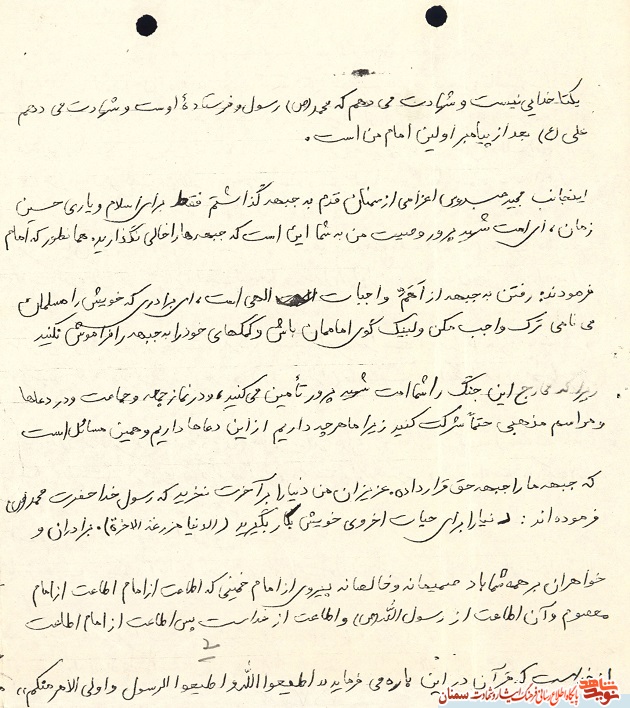 یکتا خدایی نیست و شهادت می دهم که محمد (ص) رسول و فرستادهٔ اوست و شهادت می دهم
علی (ع) بعد از پیامبر اولین امام من است.
اینجانب مجید اعزامی از سمنان قدم به جبهه گذاشتم فقط برای اسلام و یاری حسین
زمان، ای امت شهید پرور وصیت من به شما این است که جبهه ها را خالی نگذارید. همانطور که امام
فرمودند: رفتن به جبهه از اهم واجبات الهی است، ای برادری که خویش را مسلمان
می نامی ترک واجب مکن و لبیک گوی امامان باش و کمکهای خود را به جبهه را فراموش نکنید
زیرا که مخارج این جنگ را شما امت شهید پرور تأمین می کنید، و در نماز جمعه و جماعت و در دعاها
و مراسم مذهبی حتماً شرکت کنید زیرا ما هر چه داریم از این دعاها داریم و همین مسائل است
که جبهه ما را جبهه حق قرار داده. عزیزان من دنیا را بر آخرت نخرید که رسول خدا حضرت محمد (ص)
فرموده اند: دنیا را برای حیات اخروی خویش بکار بگیرید (الدنیا مزرعة الاخرة). برادران و
خواهران بر همه شما باد صمیمانه و خالصانه پیروی از امام خمینی که اطاعت از امام اطاعت از امام
معصوم و آن اطاعت از رسول الله (ص) و اطاعت از خداست پس اطاعت از امام اطاعت
۲
از خداست که قرآن در این باره می فرماید «اطیعوا الله و اطیعوا الرسول و اولی الامر منکم»
نوید شاهد پایگاه اطلاع رسانی فرهنگ ایثار و شهادت سمنان